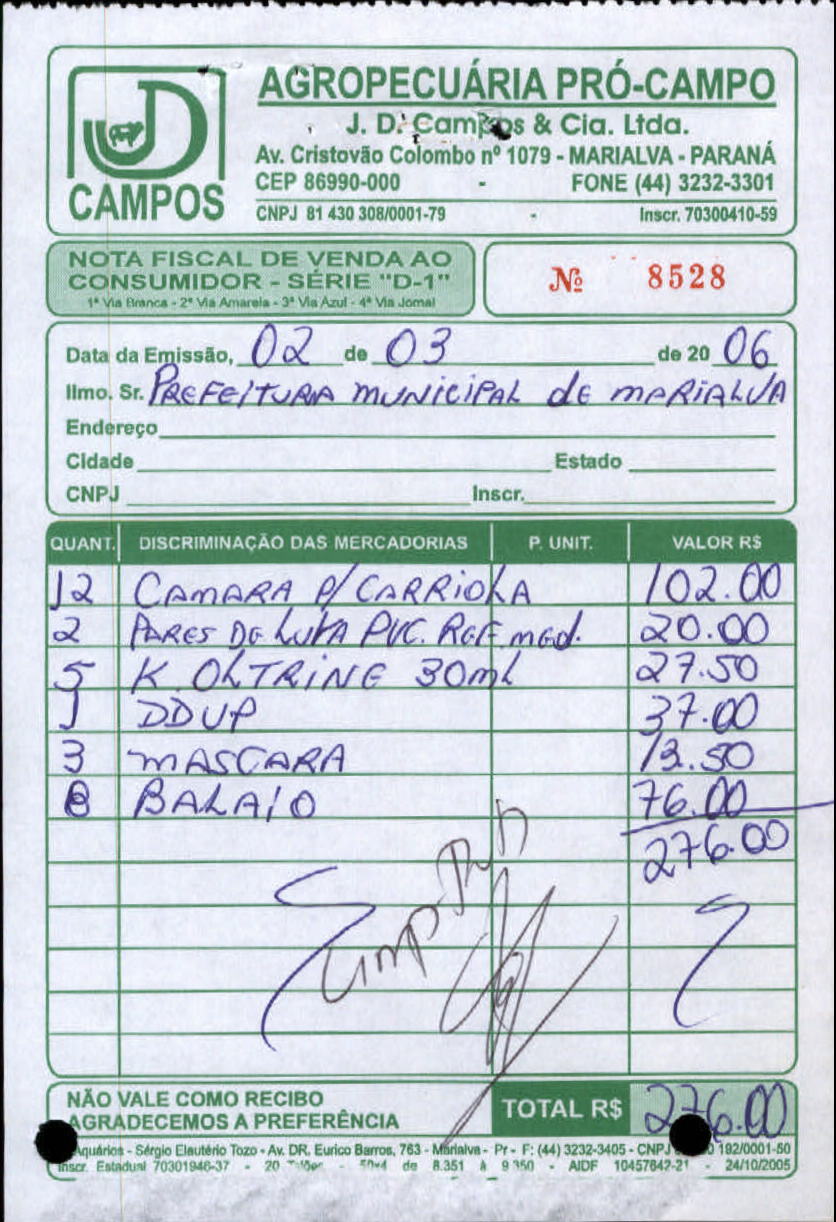 AGROPECUÁRIA PRÓ-CAMPO
J. D. Campos & Cia. Ltda.
Av. Cristovão Colombo nº 1079 - MARIALVA - PARANÁ
CEP 86990-000 - FONE (44) 3232-3301
CNPJ 81 430 308/0001-79 - Inscr. 70300410-59
JD CAMPOS
NOTA FISCAL DE VENDA AO
CONSUMIDOR - SÉRIE "D-1"
1ª Via Branca - 2ª Via Amarela - 3ª Via Azul - 4ª Via Jornal
Nº 8528
Data da Emissão, 02 de 03 de 20 06
Ilmo. Sr. PREFEITURA MUNICIPAL de MARIALVA
Endereço
Cidade Estado
CNPJ Inscr.
QUANT. DISCRIMINAÇÃO DAS MERCADORIAS P. UNIT. VALOR R$
12 CAMARA P/ CARRIOLA 102.00
2 PARES DE LUVA PVC. REF. med. 20.00
5 K. OLTRINE 30ml 27.50
1 DDUP 37.00
3 MASCARA 13.50
8 BALAIO 76.00
276.00
NÃO VALE COMO RECIBO
AGRADECEMOS A PREFERÊNCIA
TOTAL R$ 276.00
Aquários - Sérgio Elautério Tozo - Av. DR. Eurico Barros, 763 - Marialva - Pr - F: (44) 3232-3405 - CNPJ 192/0001-50
Inscr. Estadual 70301946-37 - 20 Talões - 50x4 de 8.351 à 9.350 - AIDF 10457642-21 - 24/10/2005